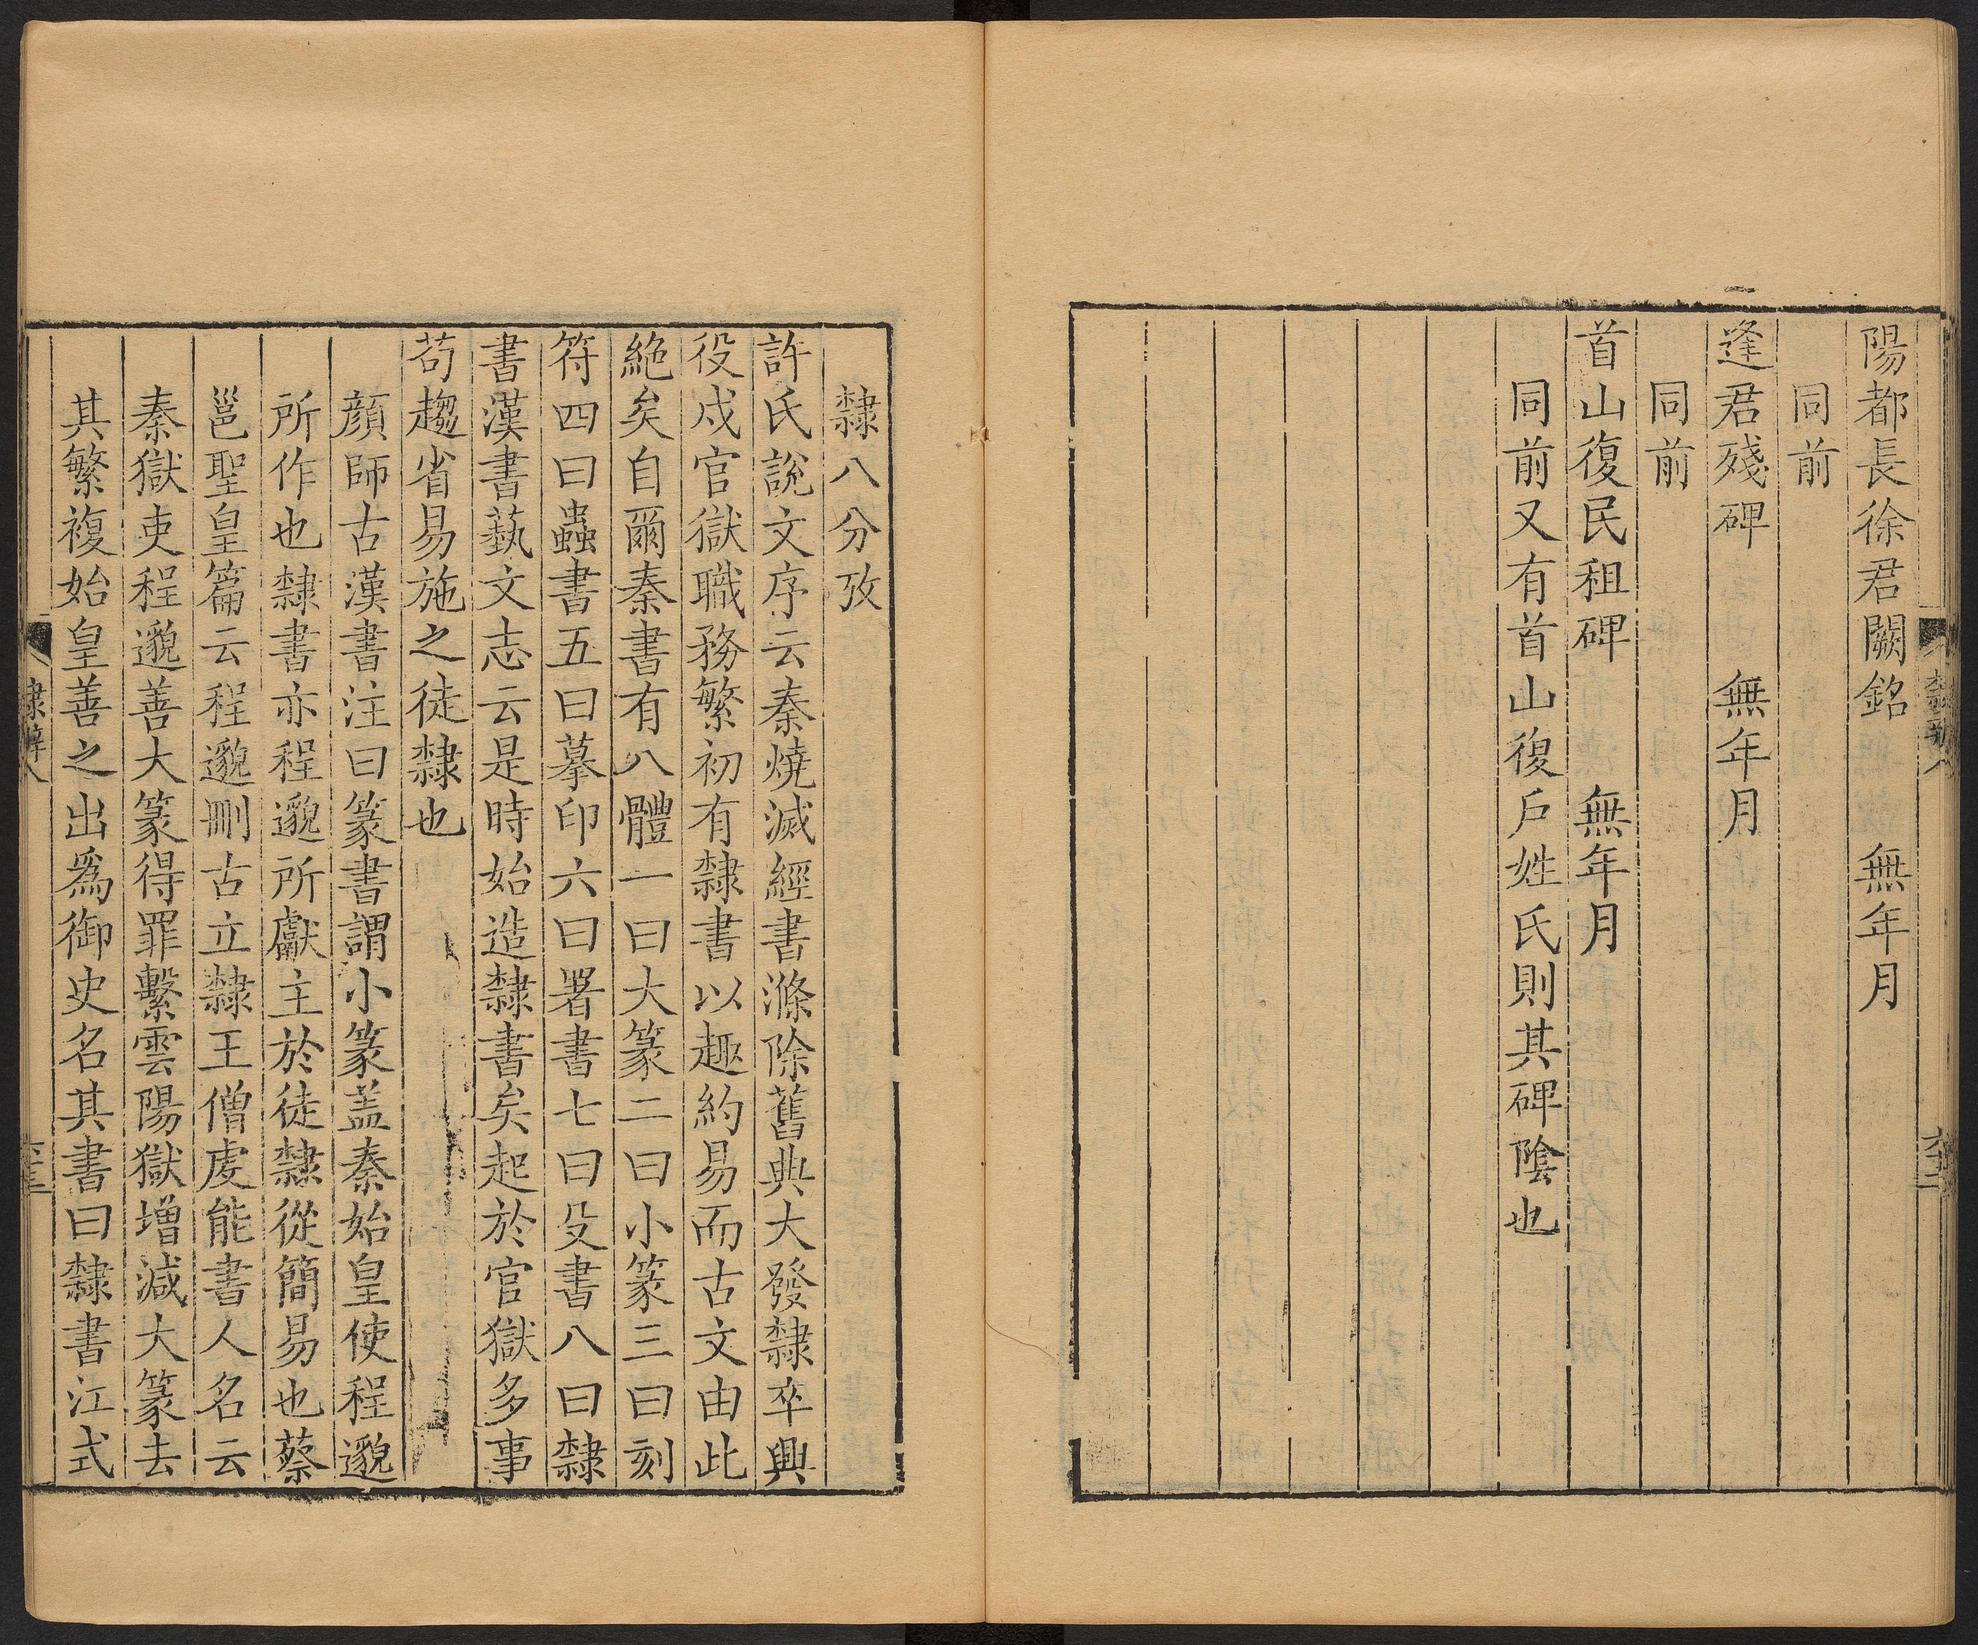 陽都長徐君闕銘 無年月
同前
逢君殘碑 無年月
同前
首山復民租碑 無年月
同前又有首山復戶姓氏則其碑陰也
隸八分攷
許氏說文序云秦燒滅經書滌除舊典大發隸卒興
役戍官獄職務繁初有隸書以趣約易而古文由此
絶矣自爾秦書有八體一曰大篆二曰小篆三曰刻
符四曰蟲書五曰摹印六曰署書七曰殳書八曰隸
書漢書藝文志云是時始造隸書矣起於官獄多事
苟趨省易施之徒隸也
顔師古漢書注曰篆書謂小篆蓋秦始皇使程邈
所作也隸書亦程邈所獻主於徒隸從簡易也蔡
邕聖皇篇云程邈刪古立隸王僧虔能書人名云
秦獄吏程邈善大篆得罪繫雲陽獄增減大篆去
其繁複始皇善之出爲御史名其書曰隸書江式
隸辨八